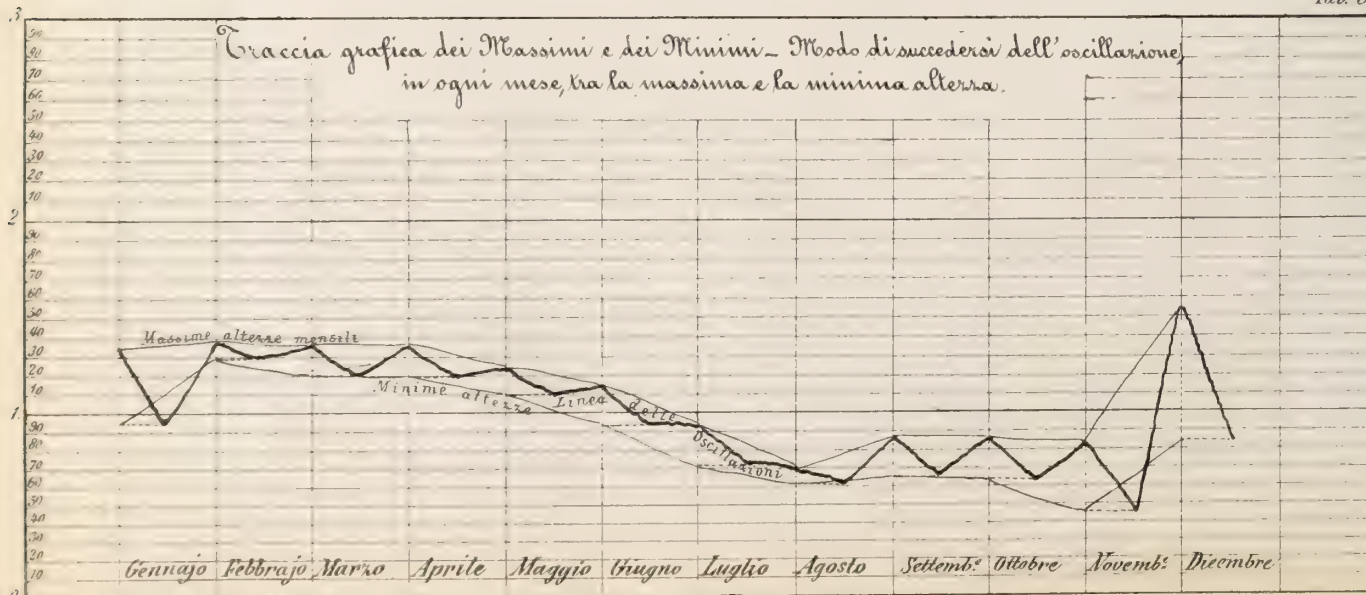 Traccia grafica dei Massimi e dei Minimi – Modo di succedersi dell'oscillazione,
in ogni mese, tra la massima e la minima altezza.
3
90
80
70
60
50
40
30
20
10
2
90
80
70
60
50
40
30
20
10
1.
90
80
70
60
50
40
30
20
10
0
Massime altezze mensili
Minime altezze
Linea delle Oscillazioni
Gennajo Febbrajo Marzo Aprile Maggio Giugno Luglio Agosto Settemb.e Ottobre Novemb.e Dicembre